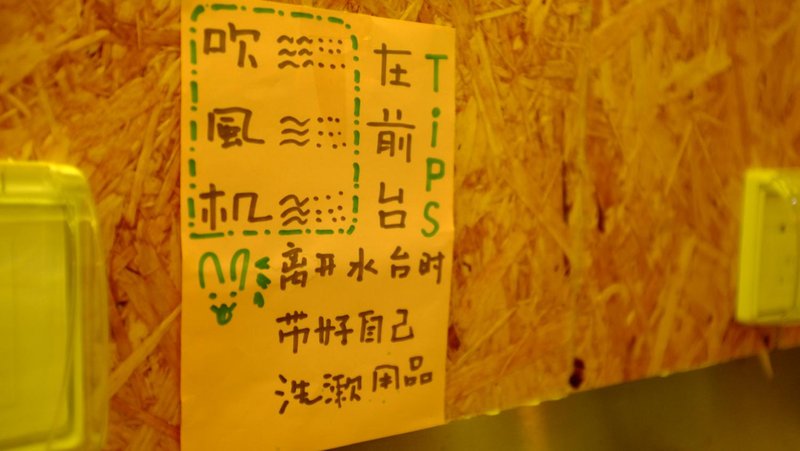 TiPS
吹風机
在前台
离开水台时
带好自己
洗漱用品